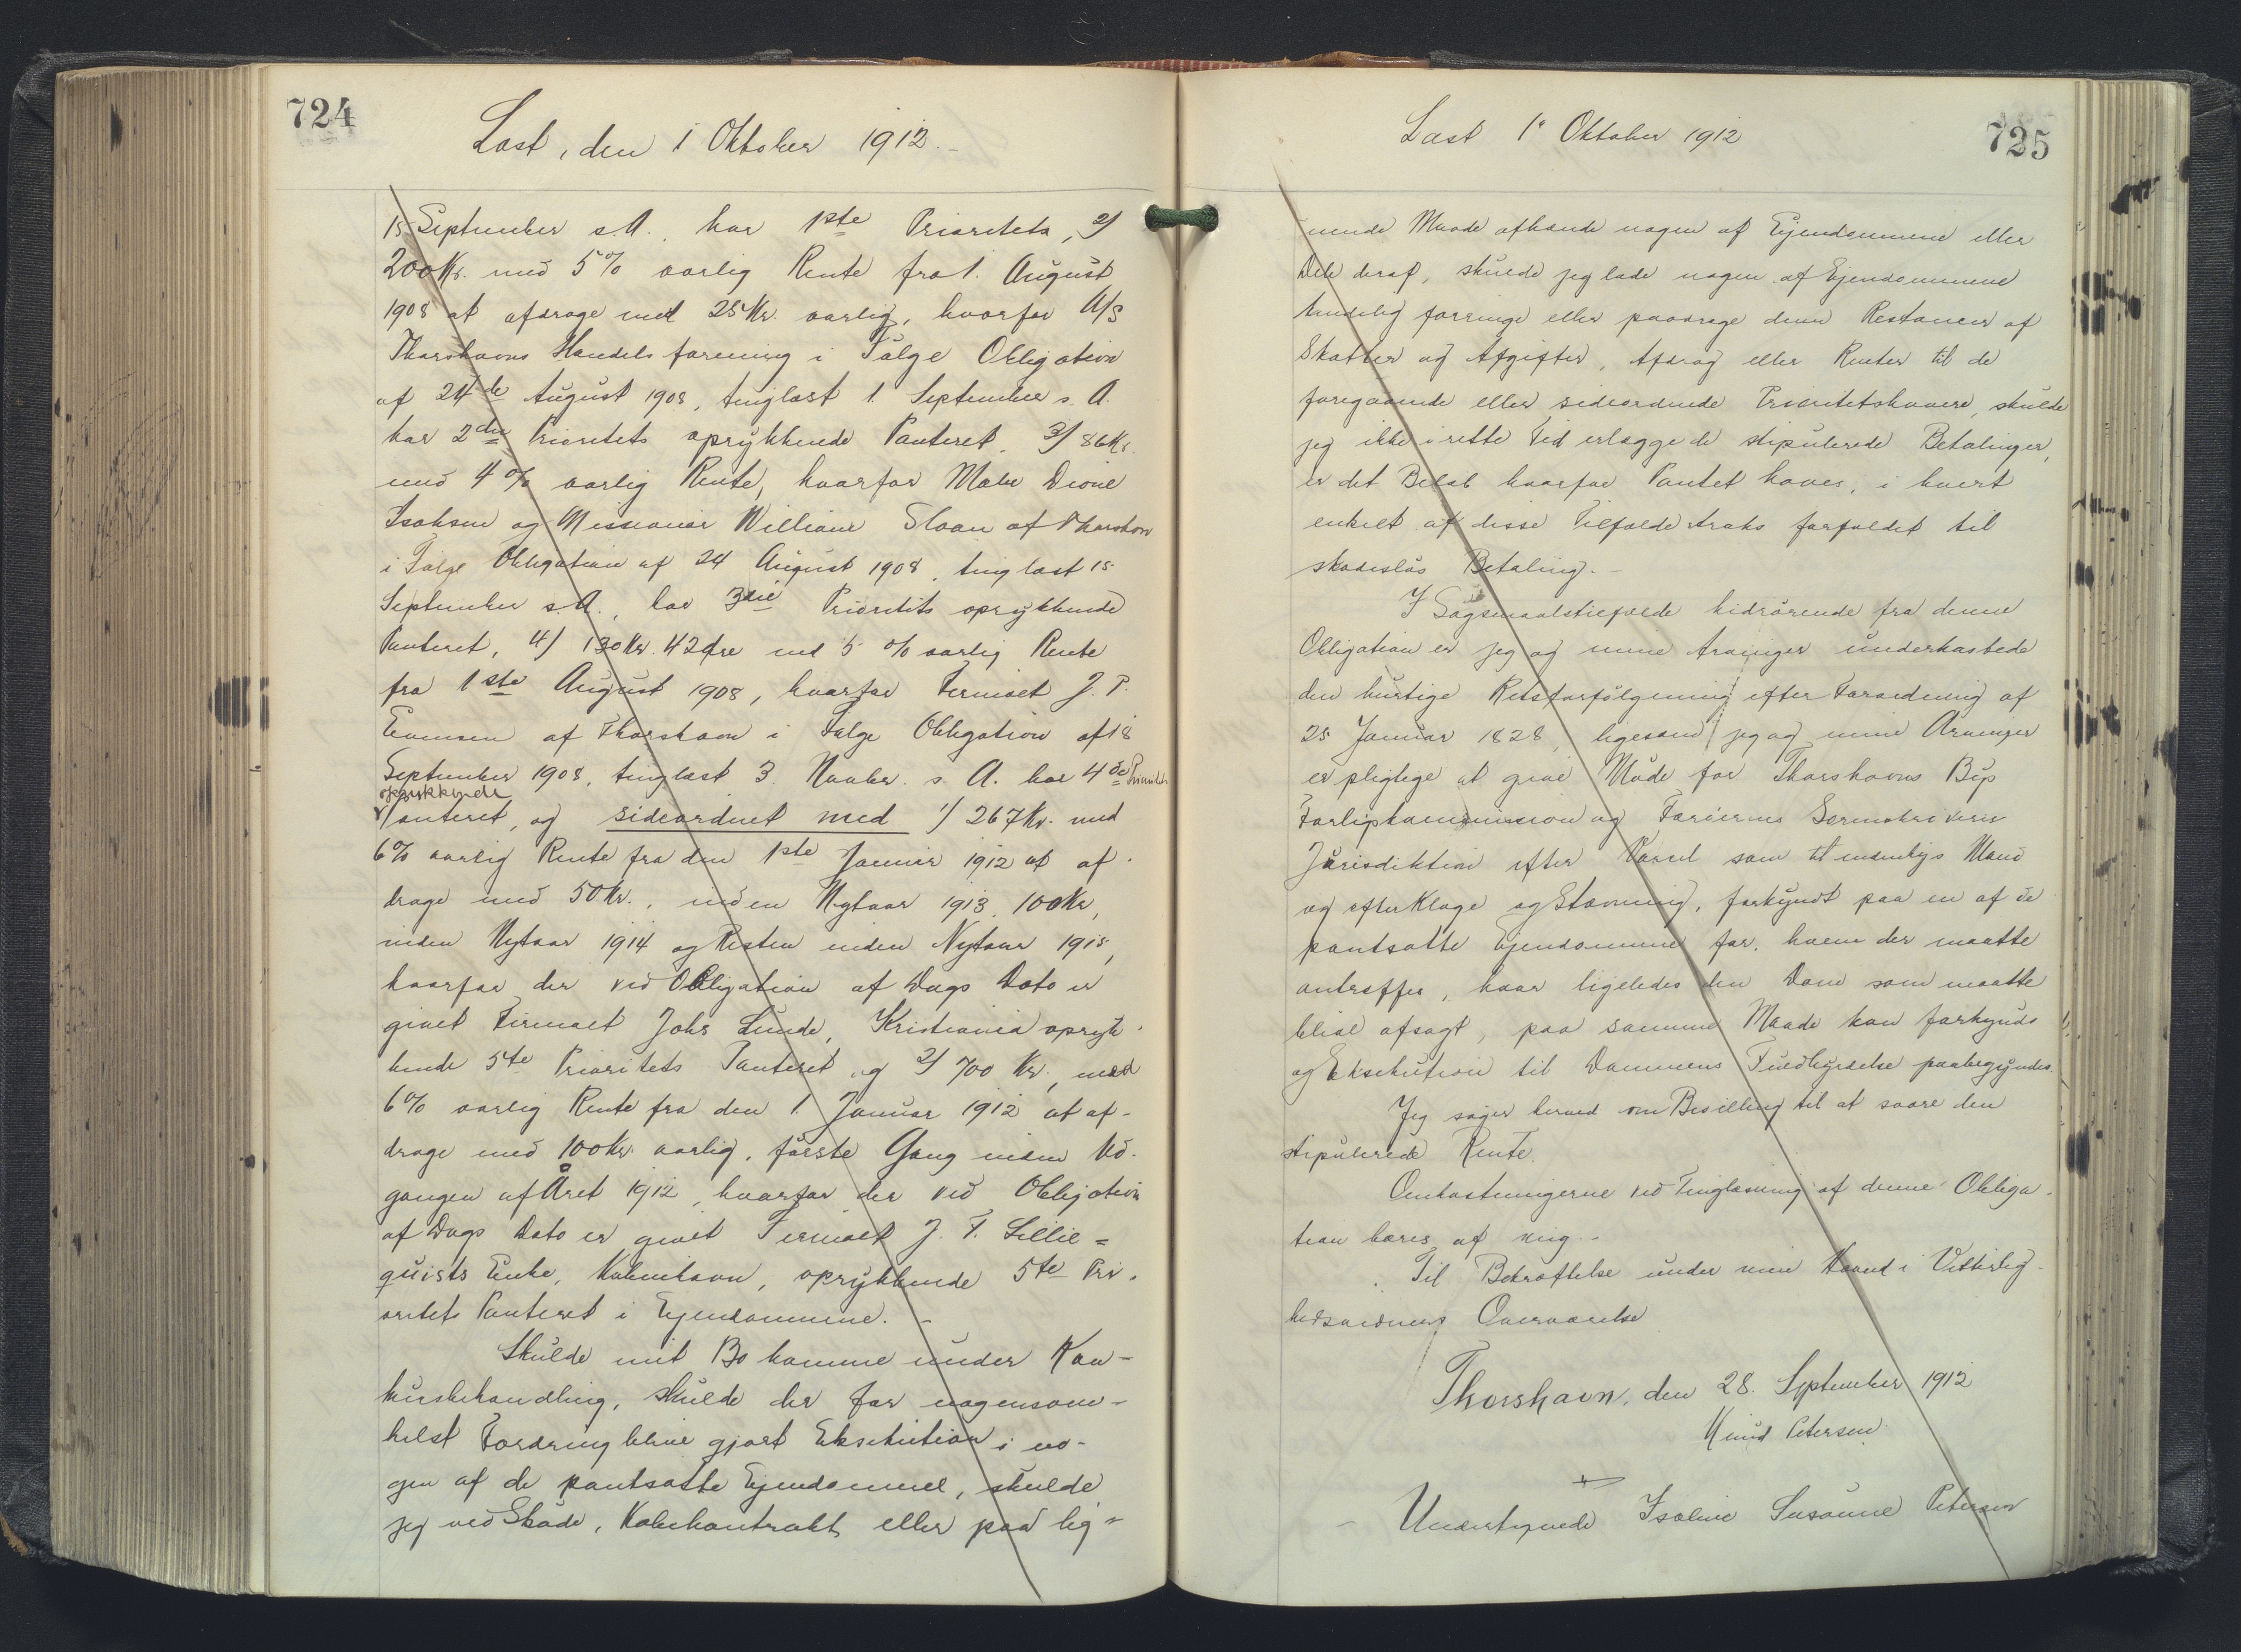 724
Læst, den 1 Oktober 1912.
15 September s.A. har 1ste Prioritets, 2/
200 Kr. med 5% aarlig Rente fra 1. August
1908 at afdrage med 25 Kr. aarlig, hvorfor A/S
Thorshavns Handelsforening i Følge Obligation
af 24de August 1908, tinglæst 1. September s. A.
har 2den Prioritets oprykkende Panteret, 3/ 86 Kr.
med 4% aarlig Rente, hvorfor Maler Dione
Isaksen og Missionær William Sloan af Thorshavn
i Følge Obligation af 24 August 1908, tinglæst 15
September s.A., har 3die Prioritets oprykkende
Panteret, 4/ 130 Kr. 42 Øre med 5 % aarlig Rente
fra 1ste August 1908, hvorfor Firmaet J. P.
Evensen af Thorshavn i Følge Obligation af 18
September 1908, tinglæst 3. Novbr. s. A. har 4de Prioritets
oprykkende
Panteret, og sideordnet med 1/ 267 Kr. med
6% aarlig Rente fra den 1ste Januar 1912 at af-
drage med 50 Kr., inden Nytaar 1913, 100 Kr,
inden Nytaar 1914 og Resten inden Nytaar 1915,
hvorfor der ved Obligation af Dags Dato er
givet Firmaet Johs Lunde, Kristiania opryk-
kende 5te Prioritets Panteret og 2/ 700 Kr., med
6% aarlig Rente fra den 1. Januar 1912 at af-
drage med 100 Kr. aarlig, første Gang inden Ud-
gangen af Året 1912, hvorfor der ved Obligation
af Dags Dato er givet Firmaet J. F. Lillie=
quists Enke, København, oprykkende 5te Pri-
oritets Panteret i Ejendommene. -
Skulde mit Bo komme under Kon-
kursbehandling, skulde der for nogensom-
helst Fordring blive gjort Eksekution i no-
gen af de pantsatte Ejendomme, skulde
jeg ved Skøde, Købekontrakt eller paa lig-
Læst 1. Oktober 1912
725
nende Maade afhænde nogen af Ejendommene eller
Dele deraf, skulde jeg lade nogen af Ejendommene
kendelig forringe eller paadrage dem Restancer af
Skatter og Afgifter, Afdrag eller Renter til de
foregaaende eller sideordnede Prioritetshavere, skulde
jeg ikke i rette Tid erlægge de stipulerede Betalinger,
er det Beløb hvorfor Pantet haves, i hvert
enkelt af disse Tilfælde straks forfaldet til
skadesløs Betaling. -
I Søgsmaalstilfælde hidrørende fra denne
Obligation er jeg og mine Arvinger underkastede
den hurtige Retsforfølgning efter Forordning af
25 Januar 1828, ligesom jeg og mine Arvinger
er pligtige at give Møde for Thorshavns Byes
Forligskommission og Færøernes Sorenskriveris
Jurisdiktion efter Varsel som til indenbys Mand
og efter Klage og Stævning, forkyndt paa en af de
pantsatte Ejendomme for, hvem der maatte
antræffes, hvor ligeledes den Dom som maatte
blive afsagt, paa samme Maade kan forkyndes
og Eksekution til Dommens Fuldbyrdelse paabegyndes.
Jeg søger herved om Bevilling til at svare den
stipulerede Rente.
Omkostningerne ved Tinglæsning af denne Obliga-
tion bæres af mig. -
Til Bekræftelse under min Haand i Vitterlig-
hedsvidners Overværelse
Thorshavn, den 28. September 1912
Knud Petersen
Undertegnede Isoline Susanne Petersen